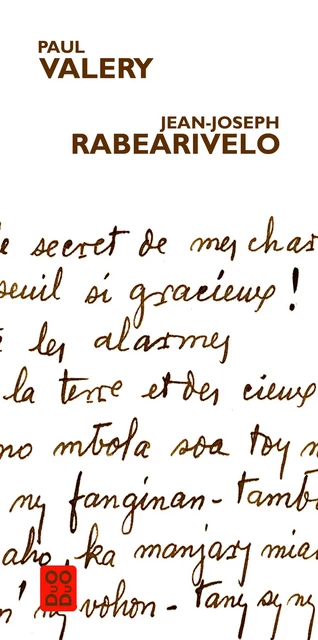 PAUL
VALERY
JEAN-JOSEPH
RABEARIVELO
le secret de mes char
seuil si gracieux !
les alarmes
la terre et des cieux
no mbola soa toy n
ny fanginan- tamb
aho, ka manjary mia
n' ny vohon- tany sy ny
DUO
DUO